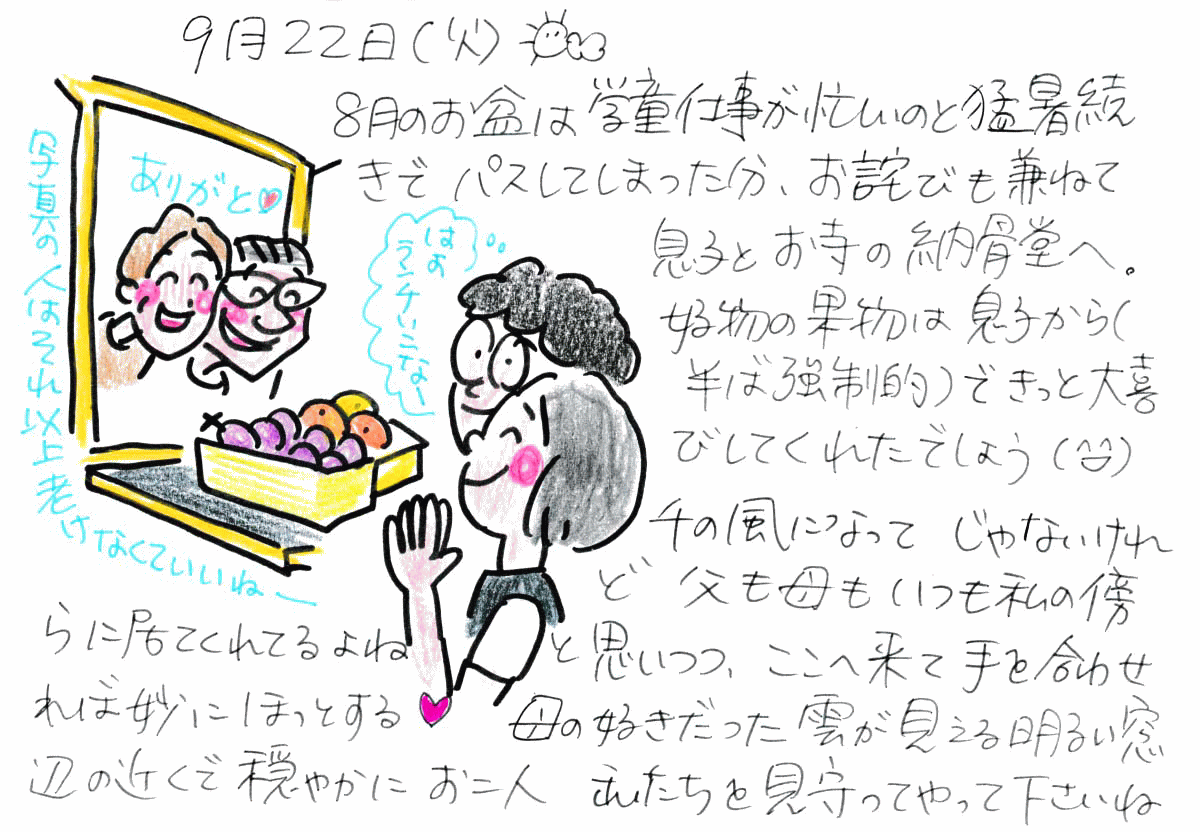 9月22日(火)
8月のお盆は学童仕事が忙しいのと猛暑続
きで パスしてしまった分、お詫びも兼ねて
息子とお寺の納骨堂へ。
好物の果物は息子から(
半ば強制的)できっと大喜
びしてくれたでしょう
千の風になって じゃないけれ
ど 父も母もいつも私の傍
らに居てくれてるよね と思いつつ、ここへ来て手を合わせ
れば妙にほっとする 母の好きだった雲が見える明るい窓
辺の近くで穏やかに お二人 私たちを見守ってやって下さいね
ありがと
写真の人はそれ以上老けなくていいねー
はよ
ランチいこなー